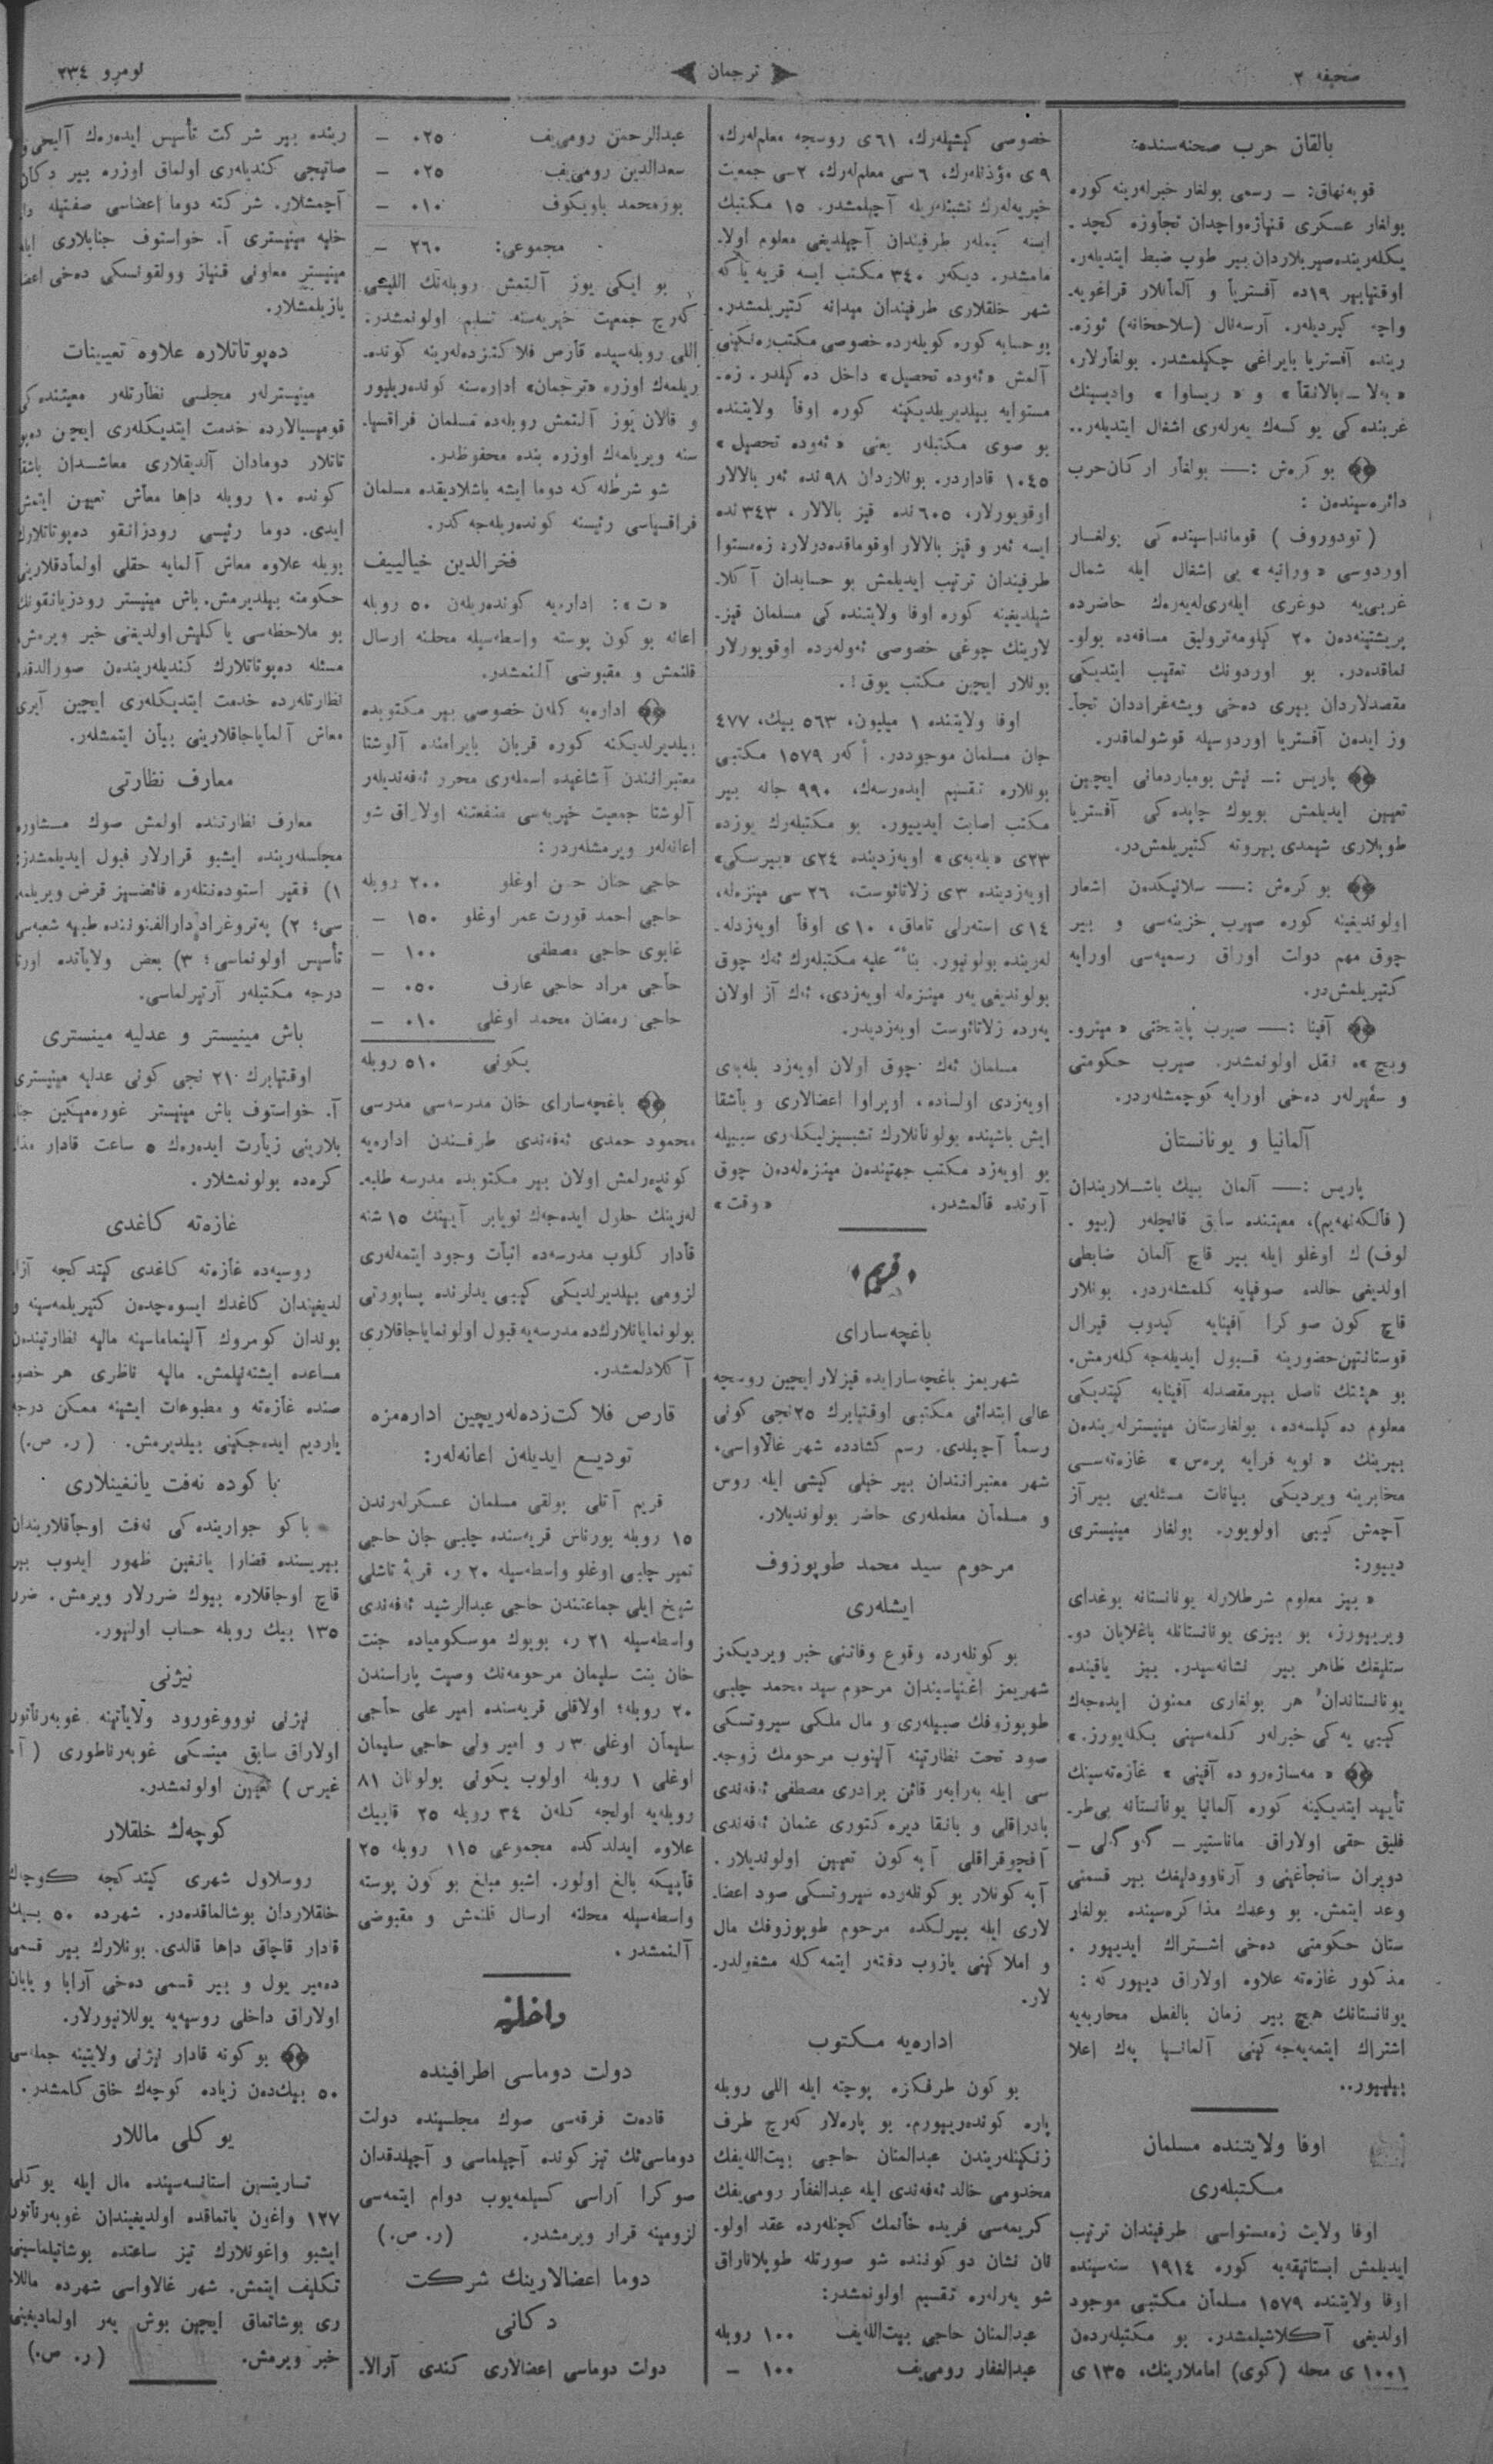 صحیفه ٢
ترجمان
نومرو ٢٣٤
بالقان حرب صحنه‌سنده:
قوپه‌نهاق: ــ رسمی بولغار خبرلەرینه كوره
بولغار عسكری قنیاژه‌واچدان تجاوزه كچد ـ
یكلەرینده‌صیربلاردان بیر طوپ ضبط ایتدیلەر.
اوقتیابیر ١٩ده آفستریا و آلمانلار قراغویه‌ـ
واچه كیردیلەر. آرسه‌نال (سلاحخانه) ئوزه‌ـ
رینده آفستریا بایراغی چكیلمشدر. بولغارلار،
«بەلا ــ پالانقا» و «ریساوا» وادیسینك
غربنده كی یوكسەك یەرلەری اشغال ایتدیلەر..
بوكرەش :ــــ بولغار اركان‌حرب
دائره‌سیندەن :
(تودوروف) قوماندا‌سینده كی بولغار
اوردوسی «ورانیه» یی اشغال ایله شمال
غربی‌یه دوغری ایلەری‌لەیەرەك حاضرده
پریشتینەدەن ٢٠ كیلومەترولیق مسافەده بولوـ
نماقدەدر. بو اوردونك تعقیب ایتدیكی
مقصدلاردان بیری دەخی ویشەغراددان تجاـ
وز ایدەن آفستریا اوردوسیله قوشولماقدر.
پاریس :ــ نیش بومباردمانی ایچین
تعیین ایدیلمش بویوك چاپده كی آفستریا
طوپلاری شیمدی بیروته كتیریلمش‌در.
بوكرەش :ــــ سلانیكدەن اشعار
اولوندیغینه كوره صیرب خزینەسی و بیر
چوق مهم دولت اوراق رسمیەسی اورایه
كتیریلمش‌در.
آفینا :ــــ صیرب پایتختی «میتروـ
ویچ»ه نقل اولونمشدر. صیرب حكومتی
و سفیرلەر دەخی اورایه كوچمشلەردر.
آلمانیا و یونانستان
پاریس :ــــ آلمان بیك باشلاریندان
(فالكەنهەیم)، معیتنده سابق قانچلەر (بیو ـ
لوف) ك اوغلو ایله بیر قاچ آلمان ضابطی
اولدیغی حالده صوفیایه كلمشلەردر. بونلار
قاچ كون صوكرا آفینایه كیدوب قیرال
قوستانتین‌حضورینه قبول ایدیلەجەكلەرمش.
بو هیئتك ناصل بیرمقصدله آفینایه كیتدیكی
معلوم دەكیلسەده، بولغارستان مینیسترلەریندەن
بیرینك «نویه فرایه پرەس» غازەتەسی
مخابرینه ویردیكی بیانات مسئلەیی بیر آز
آچمش كیبی اولویور. بولغار مینیستری
دییور:
«بیز معلوم شرطلارله یونانستانه بوغدای
ویرییورز، بو بیزی یونانستانله باغلایان دوـ
ستلیغك ظاهر بیر نشانەسیدر. بیز یاقینده
یونانستاندان هر بولغاری ممنون ایدەجەك
كیبی یەكی خبرلەر كلمەسینی بكلەیورز.»
«مەساژەرو ده آفینی» غازەتەسینك
تأیید ایتدیكینه كوره آلمانیا یونانستانه بی‌طرـ
فلیق حقی اولاراق ماناستیر ــ كوكلی ــ
دویران سانجاغینی و آرناوودلیغك بیر قسمنی
وعد ایتمش. بو وعدك مذاكرەسینده بولغار
ستان حكومتی دەخی اشتراك ایدییور.
مذكور غازەته علاوه اولاراق دییوركه :
یونانستانك هیچ بیر زمان بالفعل محاربەیه
اشتراك ایتمەیەجەكینی آلمانیا پەك اعلا
بیلییور..
اوفا ولایتنده مسلمان
مكتبلەری
اوفا ولایت زەمستواسی طرفیندان ترتیب
ایدیلمش ایستاتیقەیه كوره ١٩١٤ سنەسینده
اوفا ولایتنده ١٥٧٩ مسلمان مكتبی موجود
اولدیغی آكلاشیلمشدر. بو مكتبلەردەن
١٠٠١ ی محله (كوی) اماملارینك، ١٣٥ ی
خصوصی كیشیلەرك، ٦١ی روسچه معلم‌لەرك،
٩ ی مؤذنلەرك، ٦سی معلم‌لەرك، ٢سی جمعیت
خیریەلەرك تشبثلەریله آچیلمشدر. ١٥ مكتبك
ایسه كیملەر طرفیندان آچیلدیغی معلوم اولاـ
مامشدر. دیكەر ٣٤٠ مكتب ایسه قریه یاكه
شهر خلقلاری طرفیندان میدانه كتیریلمشدر.
بوحسابه كوره كویلەرده خصوصی مكتب‌رەنكینی
آلمش «ئەوده تحصیل» داخل دەكیلدر. زەـ
مستوایه بیلدیریلدیكینه كوره اوفا ولایتنده
بو صوی مكتبلەر یعنی «ئەوده تحصیل»
١٠٤٥ قاداردر. بونلاردان ٩٨نده ئەر بالالار
اوقویورلار، ٦٠٥نده قیز بالالار، ٣٤٣نده
ایسه ئەر و قیز بالالار اوقوماقدەدرلار. زەمستوا
طرفیندان ترتیب ایدیلمش بو حسابدان آكلاـ
شیلدیغینه كوره اوفا ولایتنده كی مسلمان قیزـ
لارینك چوغی خصوصی ئەولەرده اوقویورلار
بونلار ایچین مكتب یوق!.
اوفا ولایتنده ١ میلیون، ٥٦٣ بیك، ٤٧٧
جان مسلمان موجوددر. أكەر ١٥٧٩ مكتبی
بونلاره تقسیم ایدەرسەك، ٩٩٠ جانه بیر
مكتب اصابت ایدییور. بو مكتبلەرك یوزده
٢٣ی «بلەبەی» اویەزدینده ٢٤ی «بیرسكی»
اویەزدینده ٣ی زلاتائوست، ٢٦ سی مینزەله،
١٤ی استەرلی تاماق، ١٠ی اوفا اویەزدلەـ
لەرینده بولونیور. بناءً علیه مكتبلەرك ئەك چوق
بولوندیغی یەر مینزەله اویەزدی، ئەك آز اولان
یەرده زلاتائوست اویەزدیدر.
مسلمان ئەك چوق اولان اویەزد بلەبەی
اویەزدی اولساده، اوپراوا اعضالاری و باشقا
ایش باشینده بولونانلارك تشبسیزلیكلەری سببیله
بو اویەزد مكتب جهتیندەن مینزەلەدەن چوق
آرتده قالمشدر. «وقت»
قریم
باغچه‌سارای
شهریمز باغچه‌سارایده قیزلار ایچین روسچه
عالی ابتدائی مكتبی اوقتیابرك ٢٥نجی كونی
رسماً آچیلدی. رسم كشادده شهر غالاواسی،
شهر معتبرانندان بیر خیلی كیشی ایله روس
و مسلمان معلملەری حاضر بولوندیلار.
مرحوم سید محمد طوپوزوف
ایشلەری
بو كونلەرده وقوع وفاتنی خبر ویردیكمز
شهریمز اغنیاسیندان مرحوم سید محمد چلبی
طوپوزوفك صبیلەری و مال ملكی سیروتسكی
صود تحت نظارتینه آلینوب مرحومك زوجەـ
سی ایله بەرابەر قائن برادری مصطفی ئەفەندی
بادراقلی و بانقا دیرەكتوری عثمان ئەفەندی
آفچوقراقلی آپەكون تعیین اولوندیلار.
آپەكونلار بو كونلەرده سیروتسكی صود اعضاـ
لاری ایله بیرلكده مرحوم طوپوزوفك مال
و املاكینی یازوب دفتەر ایتمەكله مشغولدرـ
لار.
ادارەیه مكتوب
بو كون طرفكزه پوچته ایله اللی روبله
پاره كوندەرییورم. بو پارەلار كەرچ طرف
زنكینلەریندن عبدالمنان حاجی بیت‌الله‌یفك
مخدومی خالد ئەفەندی ایله عبدالغفار رومی‌یفك
كریمەسی فریده خانمك كچنلەرده عقد اولوـ
نان نشان دوكوننده شو صورتله طوپلاناراق
شو یەرلەره تقسیم اولونمشدر:
عبدالمنان حاجی بیت‌الله‌یف ١٠٠ روبله
عبدالغفار رومی‌یف ١٠٠ ــ
عبدالرحمن رومی‌یف ٠٢٥ ــ
سعدالدین رومی‌یف ٠٢٥ ــ
بوزمحمد باویكوف ٠١٠ ــ
مجموعی: ٢٦٠ ــ
بو ایكی یوز آلتمش روبلەنك اللیسی
كەرچ جمعیت خیریەسنه تسلیم اولونمشدر.
اللی روبلەسیده قارص فلاكتزدەلەرینه كوندەـ
ریلمەك اوزره «ترجمان» ادارەسنه كوندەریلیور
و قالان یوز آلتمش روبلەده مسلمان فراقسیاـ
سنه ویریلمەك اوزره بنده محفوظدر.
شو شرطله كه دوما ایشه باشلادیقده مسلمان
فراقسیاسی رئیسنه كوندەریلەجەكدر.
فخرالدین خیالییف
«ت»: ادارەیه كوندەریلەن ٥٠ روبله
اعانه بو كون پوسته واسطەسیله محلنه ارسال
قلنمش و مقبوضی آلنمشدر.
ادارەیه كلەن خصوصی بیر مكتوبده
بیلدیرلدیكنه كوره قربان بایرامنده آلوشتا
معتبرانندن آشاغیده اسملەری محرر ئەفەندیلەر
آلوشتا جمعیت خیریەسی منفعتنه اولاراق شو
اعانەلەر ویرمشلەردر:
حاجی حنان حسن اوغلو ٢٠٠ روبله
حاجی احمد قورت عمر اوغلو ١٥٠ ــ
غابوی حاجی مصطفی ١٠٠ ــ
حاجی مراد حاجی عارف ٠٥٠ ــ
حاجی رمضان محمد اوغلی ٠١٠ ــ
یكونی ٥١٠ روبله
باغچه‌سارای خان مدرسەسی مدرسی
محمود حمدی ئەفەندی طرفندن ادارەیه
كوندەرلمش اولان بیر مكتوبده مدرسه طلبەـ
لەرینك حلول ایدەجەك نویابر آیینك ١٥ شنه
قادار كلوب مدرسەده اثبات وجود ایتمەلەری
لزومی بیلدیرلدیكی كیبی یدلرنده پساپورتی
بولونمایانلارك‌ده مدرسەیه قبول اولونمایاجاقلاری
آكلادلمشدر.
قارص فلاكت‌زدەلەریچین ادارەمزه
تودیع ایدیلەن اعانەلەر:
قریم آتلی پولقی مسلمان عسكرلەرندن
١٥ روبله بورناس قریەسنده چلبی جان حاجی
تمیر چلبی اوغلو واسطەسیله ٢٠ ر، قریۀ تاشلی
شیخ ایلی جماعتندن حاجی عبدالرشید ئەفەندی
واسطەسیله ٢١ ر، بویوك موسكومیاده جنت
خان بنت سلیمان مرحومەنك وصیت پاراسندن
٢٠ روبله؛ اولاقلی قریەسنده امیر علی حاجی
سلیمان اوغلی ٣٠ ر و امیر ولی حاجی سلیمان
اوغلی ١ روبله اولوب یكونی بولونان ٨١
روبلەیه اولجه كلەن ٣٤ روبله ٢٥ قاپیك
علاوه ایدلدكده مجموعی ١١٥ روبله ٢٥
قاپیكه بالغ اولور. اشبو مبلغ بو كون پوسته
واسطەسیله محلنه ارسال قلنمش و مقبوضی
آلنمشدر.
داخلیه
دولت دوماسی اطرافینده
قادەت فرقەسی صوك مجلسینده دولت
دوماسی‌نك تیز كونده آچیلماسی و آچیلدقدان
صوكرا آراسی كسیلمەیوب دوام ایتمەسی
لزومینه قرار ویرمشدر. (ر. ص.)
دوما اعضالارینك شركت
دكانی
دولت دوماسی اعضالاری كندی آرالاـ
رینده بیر شركت تأسیس ایدەرەك آلیجی و
صاتیجی كندیلەری اولماق اوزره بیر دكان
آچمشلار. شركته دوما اعضاسی صفتیله
خلیه مینیستری آ. خواستوف جنابلاری ایله
مینیستر معاونی قنیاز وولقونسكی دەخی اعضا
یازیلمشلار.
دەپوتاتلاره علاوه تعیینات
مینیسترلەر مجلسی نظارتلەر معیتنده كی
قومیسیالارده خدمت ایتدیكلەری ایچین دەپو
تاتلار دومادان آلدیقلاری معاشدان باشقا
كونده ١٠ روبله داها معاش تعیین ایتمش
ایدی. دوما رئیسی رودزانقو دەپوتاتلارك
بویله علاوه معاش آلمایه حقلی اولمادقلارینی
حكومته بیلدیرمش. باش مینیستر رودزیانقونك
بو ملاحظەسی یاكلیش اولدیغنی خبر ویرمش.
مسئله دەپوتاتلارك كندیلەریندەن صورالدقده
نظارتلەرده خدمت ایتدیكلەری ایچین آیری
معاش آلمایاجاقلارینی بیان ایتمشلەر.
معارف نظارتی
معارف نظارتنده اولمش صوك مشاوره
مجلسلەرینده ایشبو قرارلار قبول ایدیلمشدر:
١) فقیر استودەنتلەره فائضسیز قرض ویریلمەـ
سی؛ ٢) پەتروغراد دارالفنوننده طبیه شعبەسی
تأسیس اولونماسی؛ ٣) بعض ولایاتده اورتا
درجه مكتبلەر آرتیرلماسی.
باش مینیستر و عدلیه مینستری
اوقتیابرك ٢١ نجی كونی عدلیه مینیستری
آ. خواستوف باش مینیستر غورەمیكین جناـ
بلارینی زیارت ایدەرەك ٥ ساعت قادار مذاـ
كرەده بولونمشلار.
غازەته كاغدی
روسیەده غازەته كاغدی كیتدكجه آزا
لدیغیندان كاغدك ایسوەچدەن كتیریلمەسینه و
بوندان كومروك آلینماماسینه مالیه نظارتیندەن
مساعده ایشتەنیلمش. مالیه ناظری هر خصوـ
صنده غازەته و مطبوعات ایشینه ممكن درجه
یاردیم ایدەجكینی بیلدیرمش. (ر. ص.)
باكوده نەفت یانغینلاری
باكو جوارینده كی نەفت اوجاقلاریندان
بیریسنده قضارا یانغین ظهور ایدوب بیر
قاچ اوجاقلاره بیوك ضررلار ویرمش. ضرر
١٣٥ بیك روبله حساب اولنیور.
نیژنی
نیژنی نوووغورود ولایاتینه غوبەرناتور
اولاراق سابق مینسكی غوبەرناطوری (آ.
غیرس) تعیین اولونمشدر.
كوچەك خلقلار
روسلاول شهری كیتدكجه كوچەك
خلقلاردان بوشالماقدەدر. شهرده ٥٠ بیك
قادار قاچاق داها قالدی. بونلارك بیر قسمی
دەمیر یول و بیر قسمی دەخی آرابا و یایان
اولاراق داخلی روسیەیه یوللانیورلار.
بو كونه قادار نیژنی ولایتینه جملەسی
٥٠ بیك‌دەن زیاده كوچەك خلق كلمشدر.
یوكلی ماللار
تساریتسین استانسەسینده مال ایله یوكلی
١٢٧ واغون یاتماقده اولدیغیندان غوبەرناتور
ایشبو واغونلارك تیز ساعتده بوشاتیلماسینی
تكلیف ایتمش. شهر غالاواسی شهرده ماللاـ
ری بوشاتماق ایچین بوش یەر اولمادیغینی
خبر ویرمش. (ر. ص.)